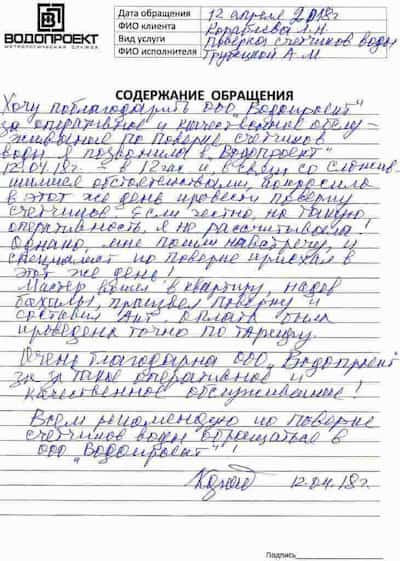 ВОДОПРОЕКТ
МЕТРОЛОГИЧЕСКАЯ СЛУЖБА
Дата обращения 12 апреля 2018г
ФИО клиента Кораблева Л.Н.
Вид услуги Поверка счетчиков воды
ФИО исполнителя Трубецкой А.М.
СОДЕРЖАНИЕ ОБРАЩЕНИЯ
Хочу поблагодарить ООО „Водопроект"
за оперативное и качественное обслу-
живание по поверке счетчиков
воды. Я позвонила в „Водопроект"
12.04.18г. – в 12 час и, в связи со сложив-
шимися обстоятельствами, попросила
в этот же день провести поверку
счетчиков. Если честно, на такую
оперативность, я не рассчитывала!
Однако, мне пошли навстречу, и
специалист по поверке приехал в
этот же день!
Мастер вошел в квартиру, надев
бахилы, произвел поверку и
составил Акт. Оплата была
проведена точно по тарифу.
Очень благодарна ООО „Водопроект"
за такое оперативное и
качественное обслуживание!
Всем рекомендую по поверке
счетчиков воды обращаться в
ООО „Водопроект"!
12.04.18г.
Подпись